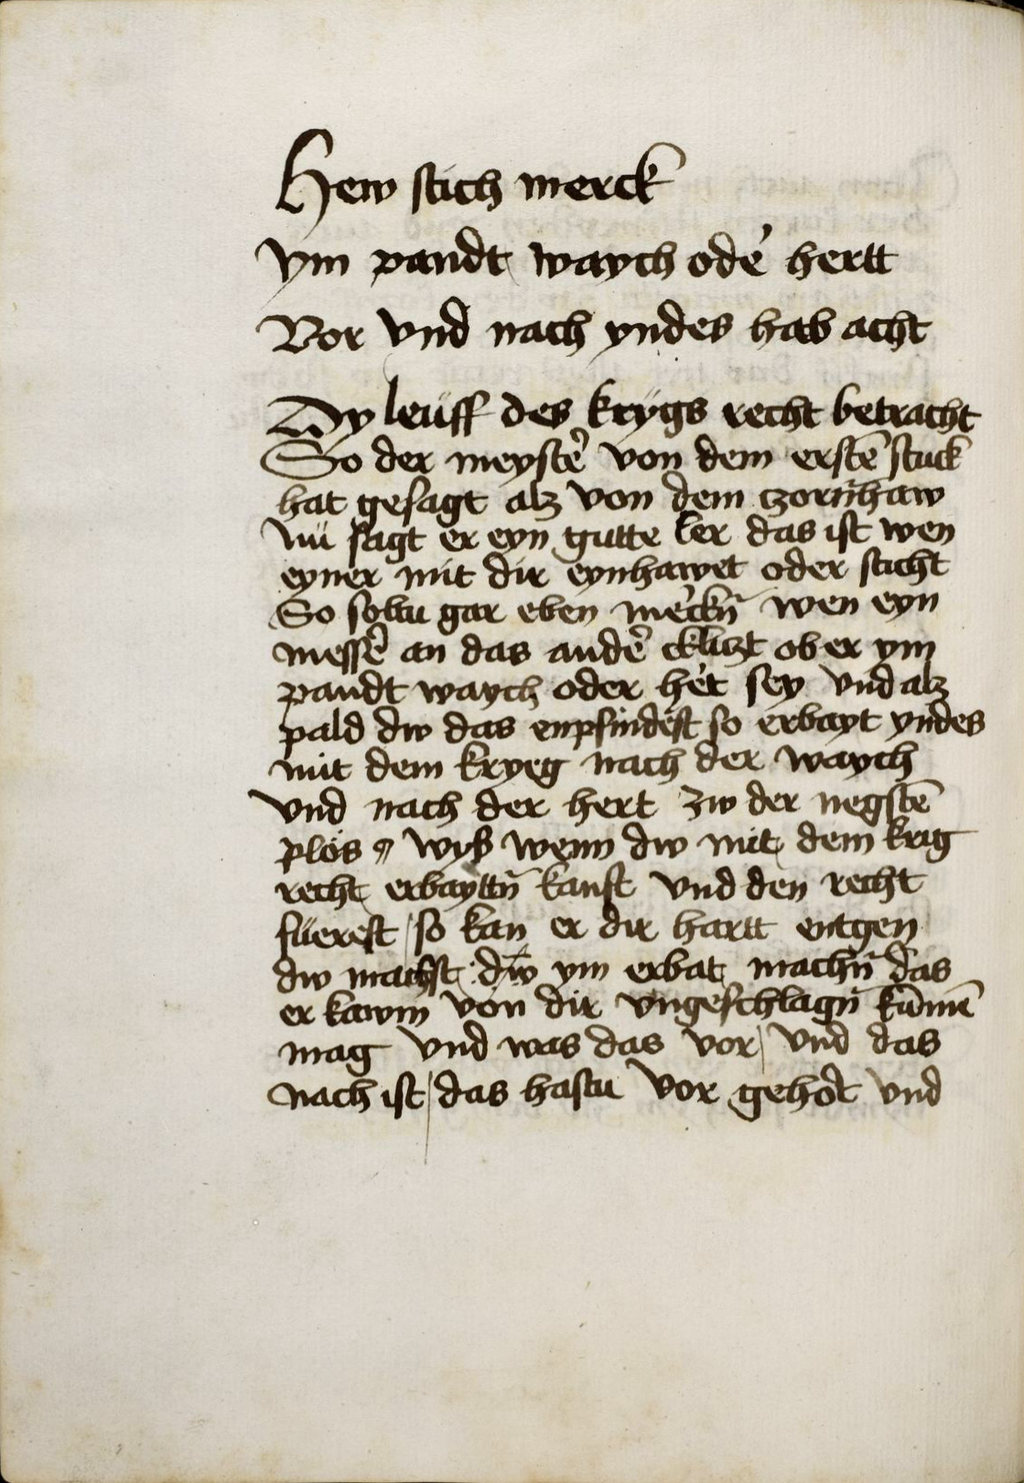 Hew stich merck
ym pandt waych odẻ hertt
Vor vnd nach yndes hab acht
Dy leüff des krÿgs recht betracht
So der meystẻ von dem erstē stuck
hat gesagt alz von dem czorn̄haw
Nü sagt er eyn gutte ler das ist wen
eyner mit dir eynhawet oder sticht
So soltu gar eben mẻckn̄ wen eyn
messẻ an das andẻ cklitzt ob er ym
pandt waych oder hẻt sey vnd alz
pald dw das enpfindest so erbayt yndes
mit dem kryeg nach der waych
vnd nach der hert zw der negstē
plös wyß wenn dw mit dem krig
recht erbayttn̄ kanst vnd den recht
füerest so kan er dir hartt entgen
dw machst dw ym erbat machn̄ das
er kawm von dir vngeschlagn̄ kūmē
mag vnd was das vor vnd das
nach ist das hastu vor gehort vnd